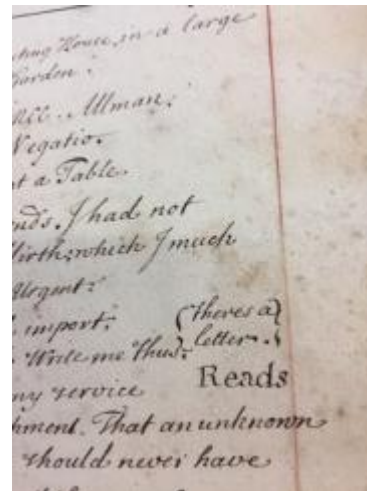 House, in a large
Garden.
Allman.
Negatio.
t a Table.
nds. I had not
Mirth; which I much
Urgent:
import. (theres a)
Write me thus. letter.
Reads
ny service
hment. That an unknown
should never have